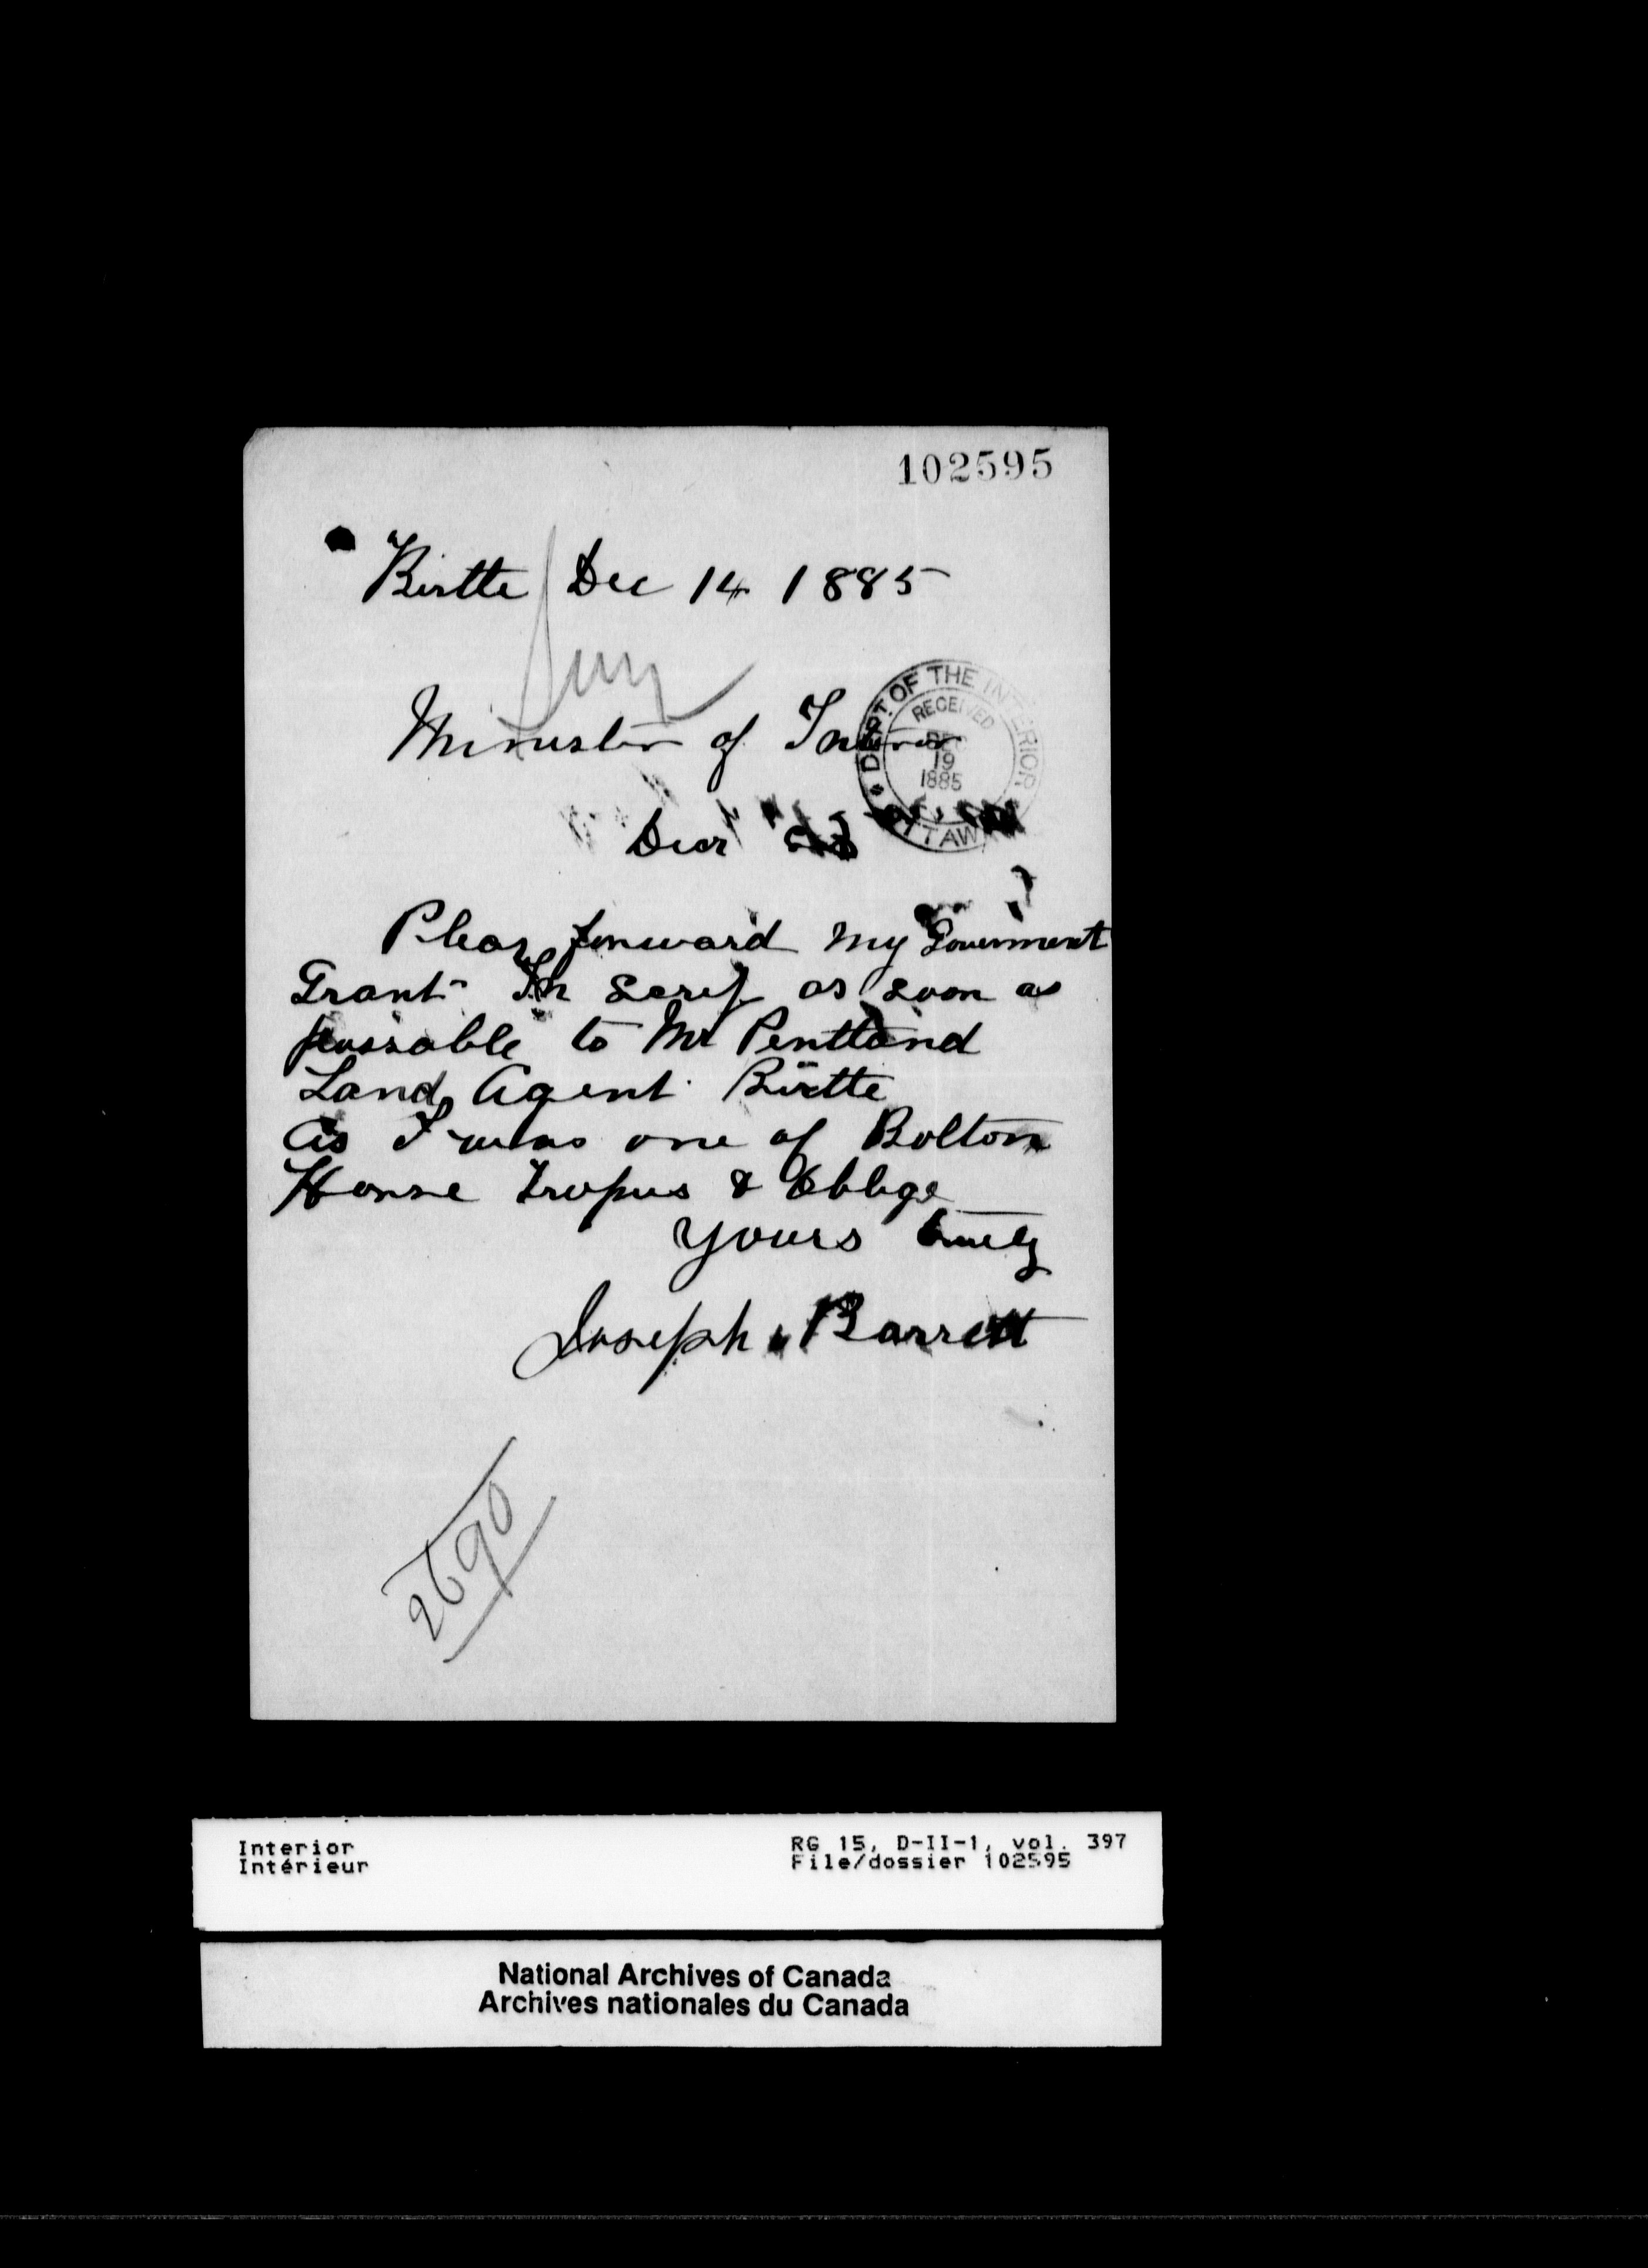 102595
Birtle Dec 14 1885
Minister of Interior
DEPT. OF THE INTERIOR
RECEIVED
DEC
19
1885
OTTAWA
Dear Sir
Pleas forward my Government
Grant In Scrip as soon as
possable to Mr Pentland
Land Agent Birtle
as I was one of Bolton
Horse Tropus & Oblige
Yours truly
Joseph Barrett
2690
Interior
Intérieur
RG 15, D-II-1, vol. 397
File/dossier 102595
National Archives of Canada
Archives nationales du Canada